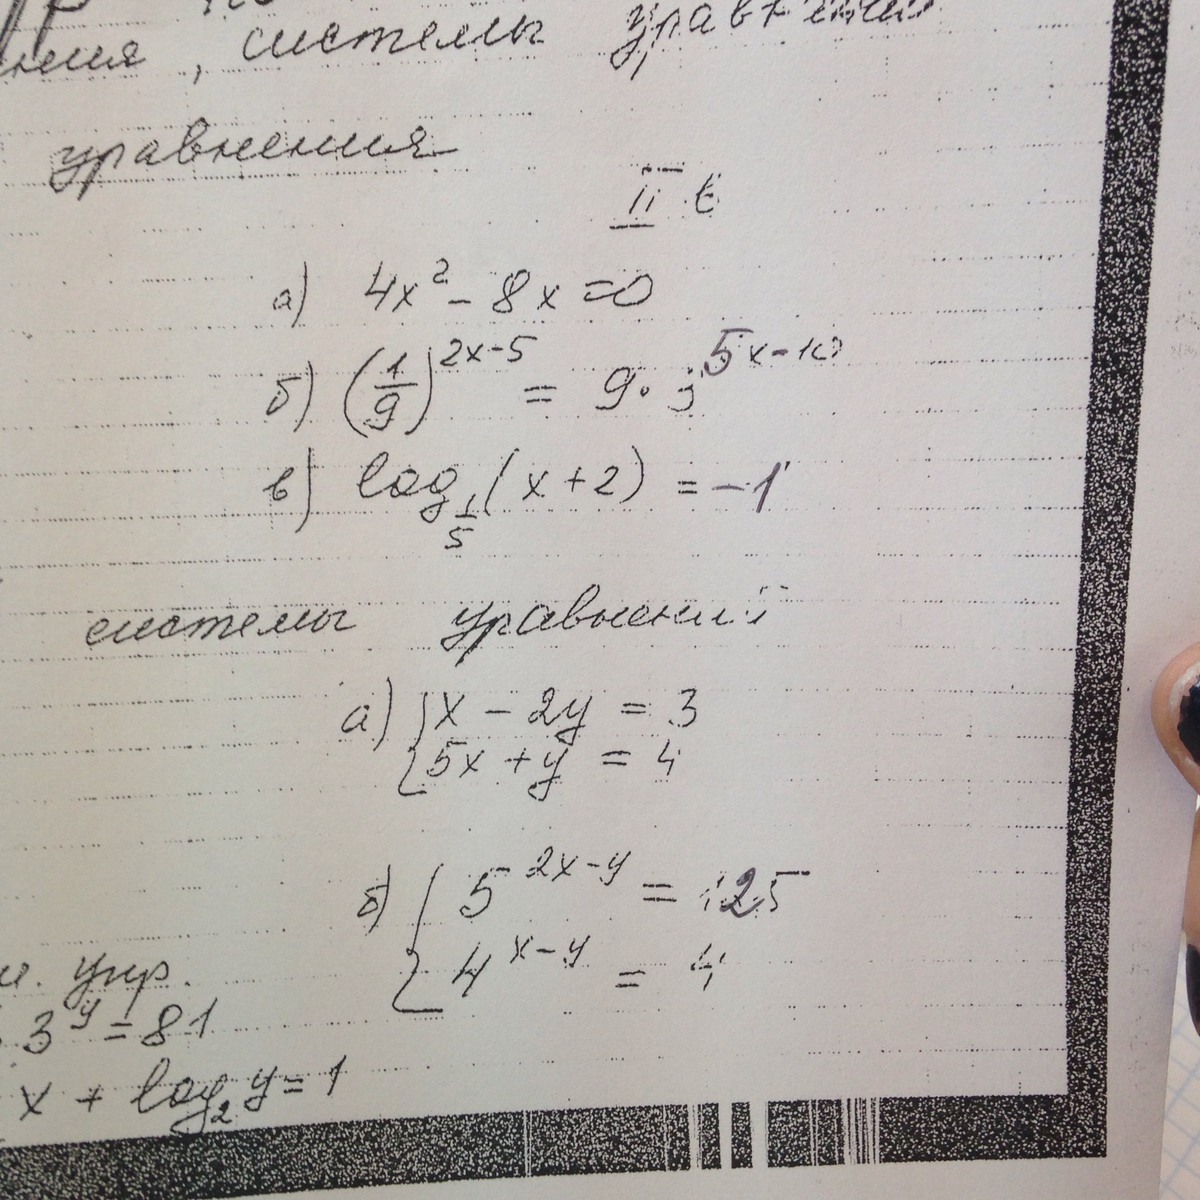 , системы уравнений
уравнения
II в
а) 4x² - 8x = 0
б) (1/9)^(2x-5) = 9 · 3^(5x-10)
в) log_(1/5) (x+2) = -1
системы уравнений
а) { x - 2y = 3
5x + y = 4
б) { 5^(2x-y) = 125
4^(x-y) = 4
упр.
3^y = 81
x + log₂ y = 1